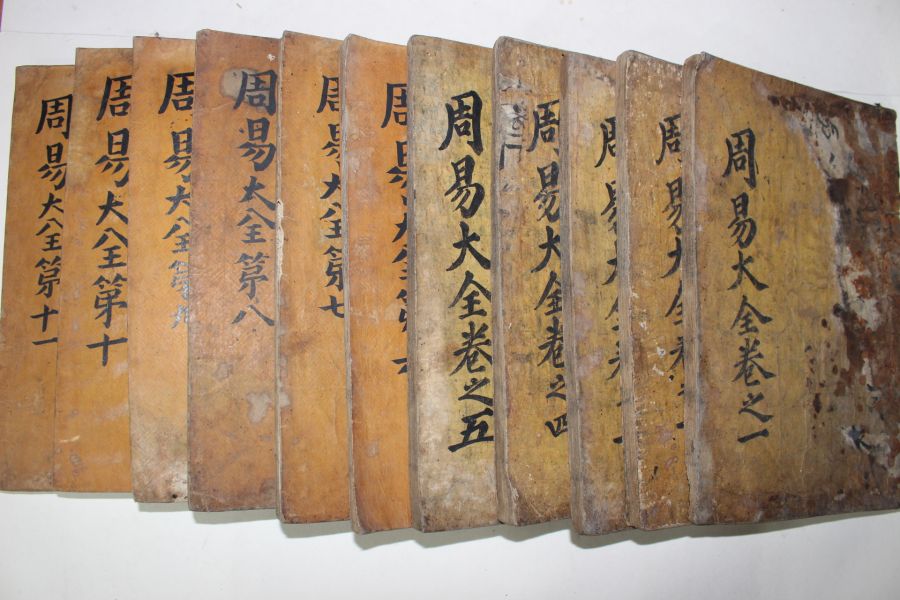 周易大全卷之一
周易大全卷之
周易大全卷
周易大全卷之四
周易大全卷之五
周易大全第六
周易大全第七
周易大全第八
周易大全第九
周易大全第十
周易大全第十一